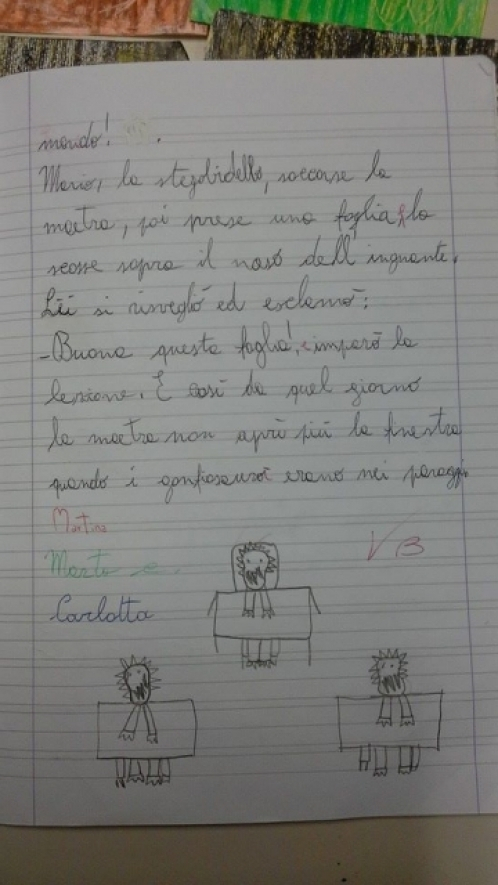 mondo!
Mario, lo stegobidello, soccorse la
maetra, poi prese una foglia e la
scosse sopra il naso dell'ingnante.
Lei si risvegliò ed esclamò:
-Buona questa foglia!, imparò la
lezione. E così da quel giorno
la maetra non aprì più la finestra
quando i gonfiosauri erano nei paraggi.
Martina
Marta e
Carlotta
VB